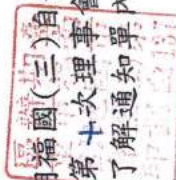 福國(三)自
第十次理事會
了解通知單